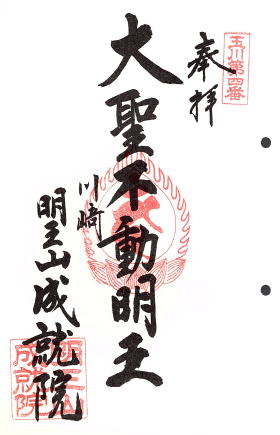 玉川第四番
奉拝
大聖不動明王
川崎
明王山成就院
明王山
成就院